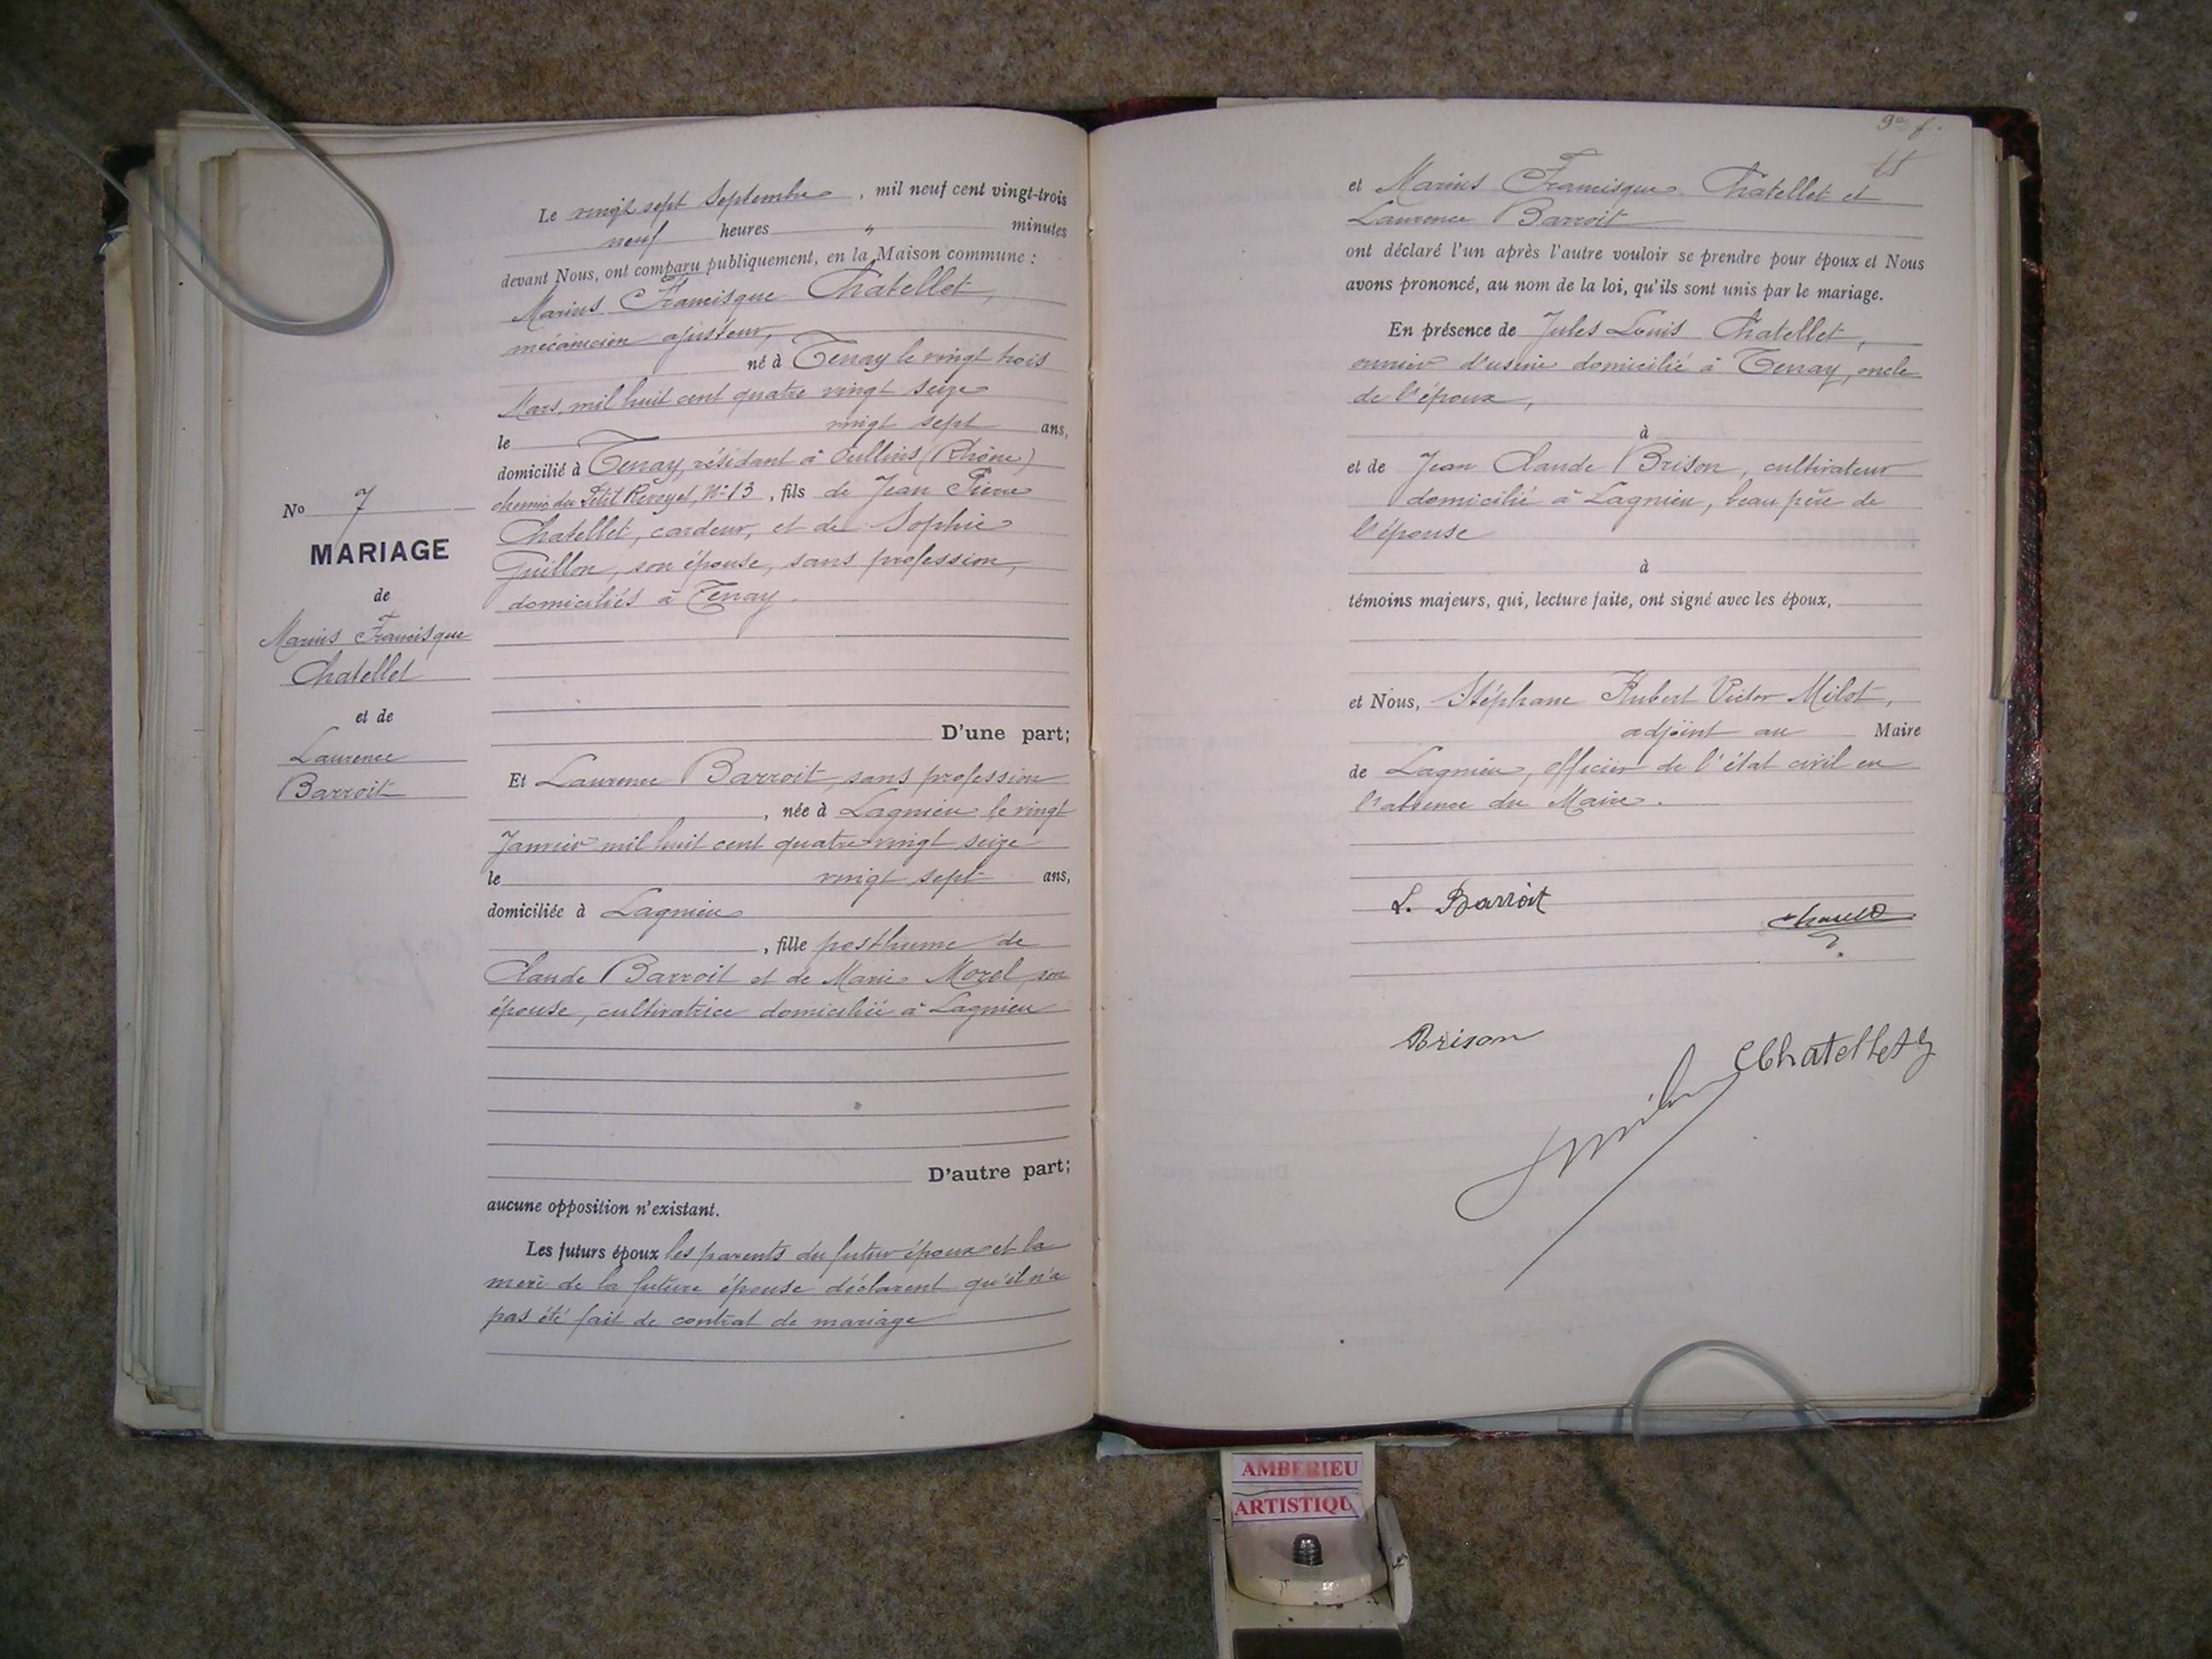 Le vingt sept Septembre, mil neuf cent vingt-trois
neuf heures " minutes
devant Nous, ont comparu publiquement, en la Maison commune :
Marius Francisque Chatellet,
mécanicien ajusteur,
né à Tenay le vingt trois
Mars, mil huit cent quatre vingt seize
le vingt sept ans,
domicilié à Tenay, résidant à Oullins (Rhône)
chemin du Petit Revoyet, N° 13, fils de Jean Pierre
Chatellet, cardeur, et de Sophie
Guillon, son épouse, sans profession,
domiciliés à Tenay.
No 7
MARIAGE
de
Marius Francisque
Chatellet
et de
Laurence
Barroit
D'une part;
Et Laurence Barroit, sans profession
, née à Lagnieu le vingt
Janvier mil huit cent quatre vingt seize
le vingt sept ans,
domiciliée à Lagnieu
, fille posthume de
Claude Barroit et de Marie Morel, son
épouse, cultivatrice domiciliée à Lagnieu
D'autre part;
aucune opposition n'existant.
Les futurs époux les parents du futur époux et la
mère de la future épouse déclarent qu'il n'a
pas été fait de contrat de mariage
et Marius Francisque Chatellet et
Laurence Barroit
ont déclaré l'un après l'autre vouloir se prendre pour époux et Nous
avons prononcé, au nom de la loi, qu'ils sont unis par le mariage.
En présence de Jules Louis Chatellet,
ouvrier d'usine domicilié à Tenay, oncle
de l'époux,
à
et de Jean Claude Brison, cultivateur
domicilié à Lagnieu, beau père de
l'épouse
à
témoins majeurs, qui, lecture faite, ont signé avec les époux,
et Nous, Stéphane Hubert Victor Milot,
adjoint au Maire
de Lagnieu, officier de l'état civil en
l'absence du Maire.
L. Barroit
Brison
Chatellet
AMBERIEU
ARTISTIQU